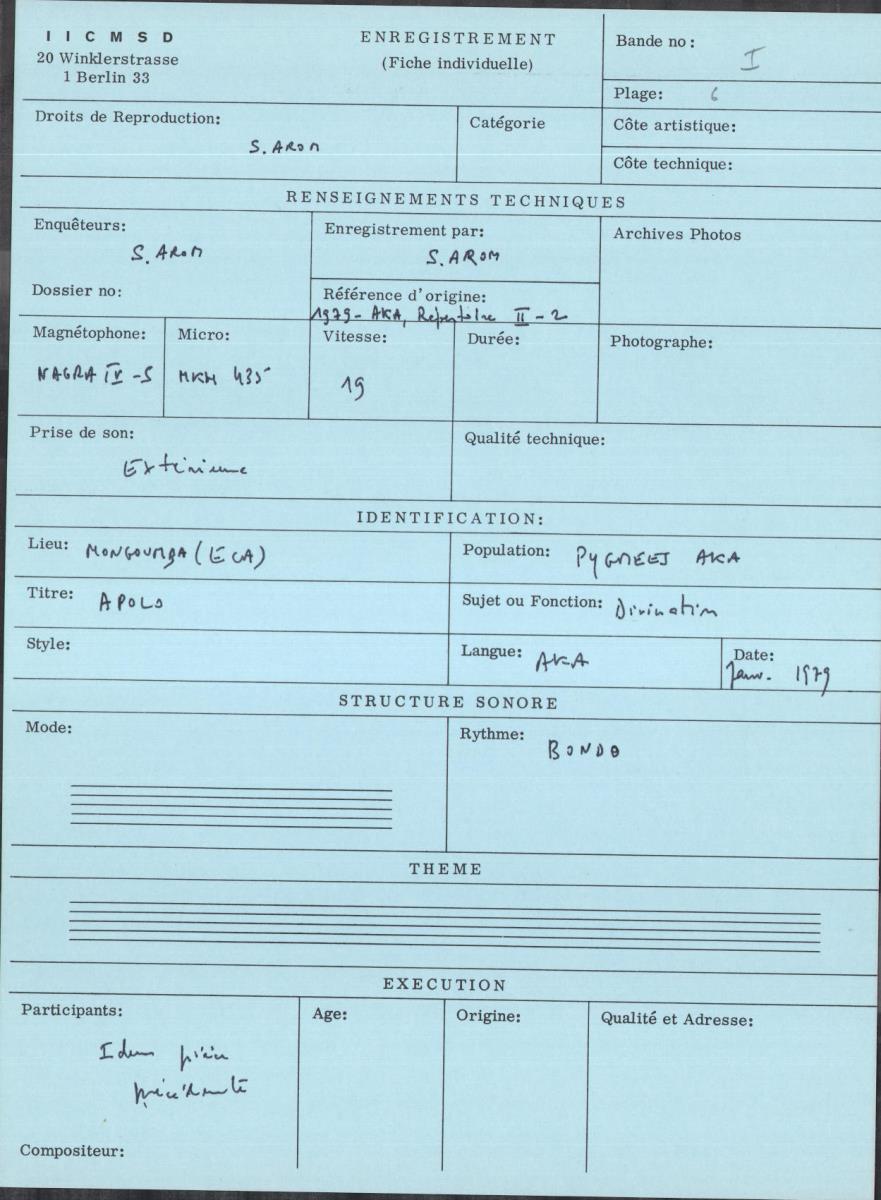 I I C M S D
20 Winklerstrasse
1 Berlin 33
ENREGISTREMENT
(Fiche individuelle)
Bande no: I
Plage: 6
Droits de Reproduction:
S. AROM
Catégorie
Côte artistique:
Côte technique:
RENSEIGNEMENTS TECHNIQUES
Enquêteurs:
S. AROM
Dossier no:
Enregistrement par:
S. AROM
Référence d'origine:
1979 - AKA, Répertoire II - 2
Archives Photos
Magnétophone:
NAGRA IV - S
Micro:
MKH 435
Vitesse:
19
Durée:
Photographe:
Prise de son:
Extérieure
Qualité technique:
IDENTIFICATION:
Lieu: MONGOUMBA (ECA)
Population: PYGMEES AKA
Titre: APOLO
Sujet ou Fonction: Divination
Style:
Langue: AKA
Date:
Janv. 1979
STRUCTURE SONORE
Mode:
Rythme: BONDO
THEME
EXECUTION
Participants:
Idem pièce
précédente
Age:
Origine:
Qualité et Adresse:
Compositeur: